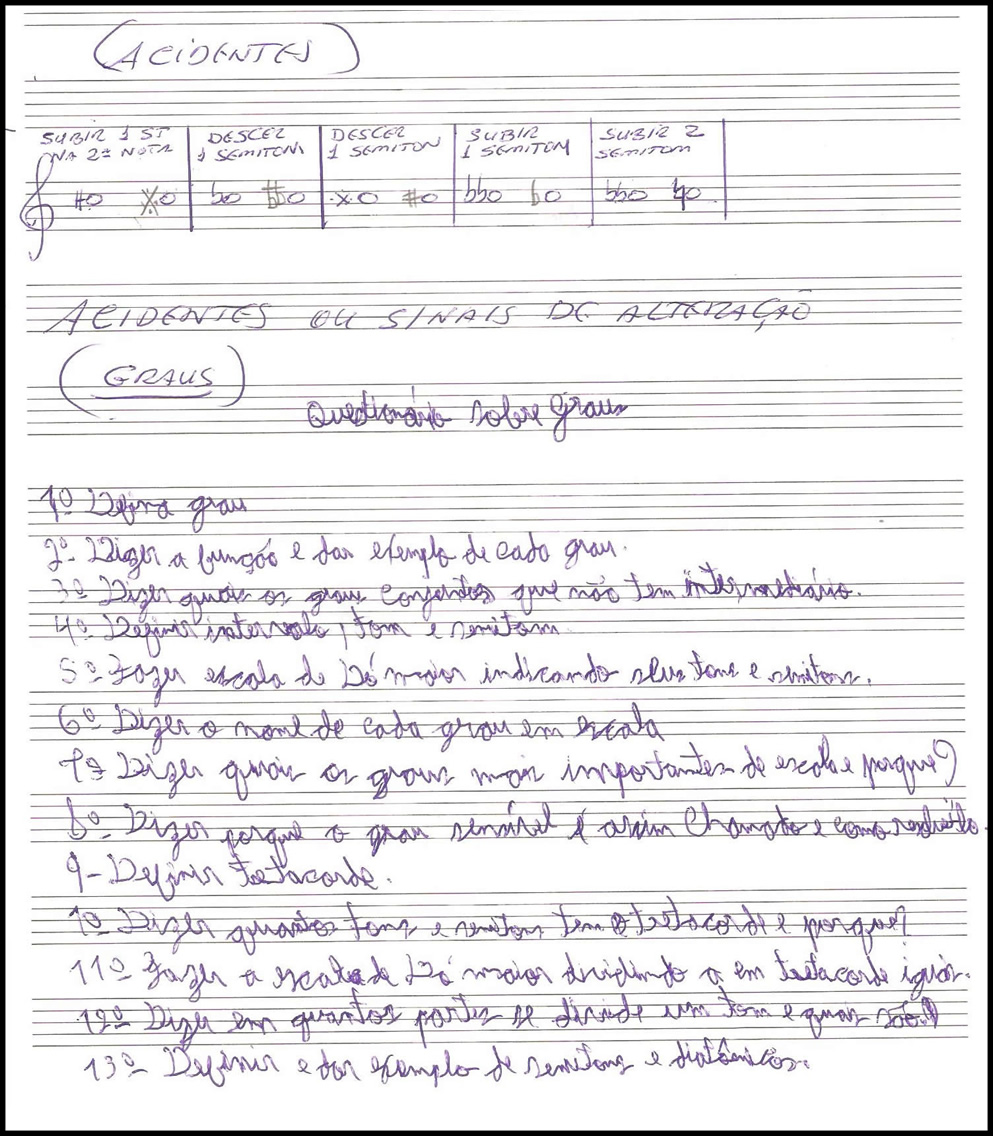 (ACIDENTES)
SUBIR 1 ST NA 2ª NOTA
DESCER 1 SEMITOM
DESCER 1 SEMITON
SUBIR 1 SEMITOM
SUBIR 2 SEMITOM
ACIDENTES OU SINAIS DE ALTERAÇÃO
(GRAUS)
Questionário sobre Graus
1º Defina grau
2º- Dizer a função e dar exemplo de cada grau.
3º Dizer quais os graus conjuntos que não tem intermediário.
4º Definir intervalo, tom e semitom
5º Fazer escala de Dó maior indicando seus tons e semitons.
6º Dizer o nome de cada grau em escala
7º Dizer quais os graus mais importantes de escala e porque?
8º Dizer porque o grau sensível é assim chamado e como
9- Definir tetacorde.
10 Dizer quantos tons e semitons tem o tetacorde e porque?
11º Fazer a escala de Dó maior dividindo a em tetacorde iguais.
12º Dizer em quantos partes se divide um tom e quais são?
13º Definir e dar exemplo de semitons e diatônicos.